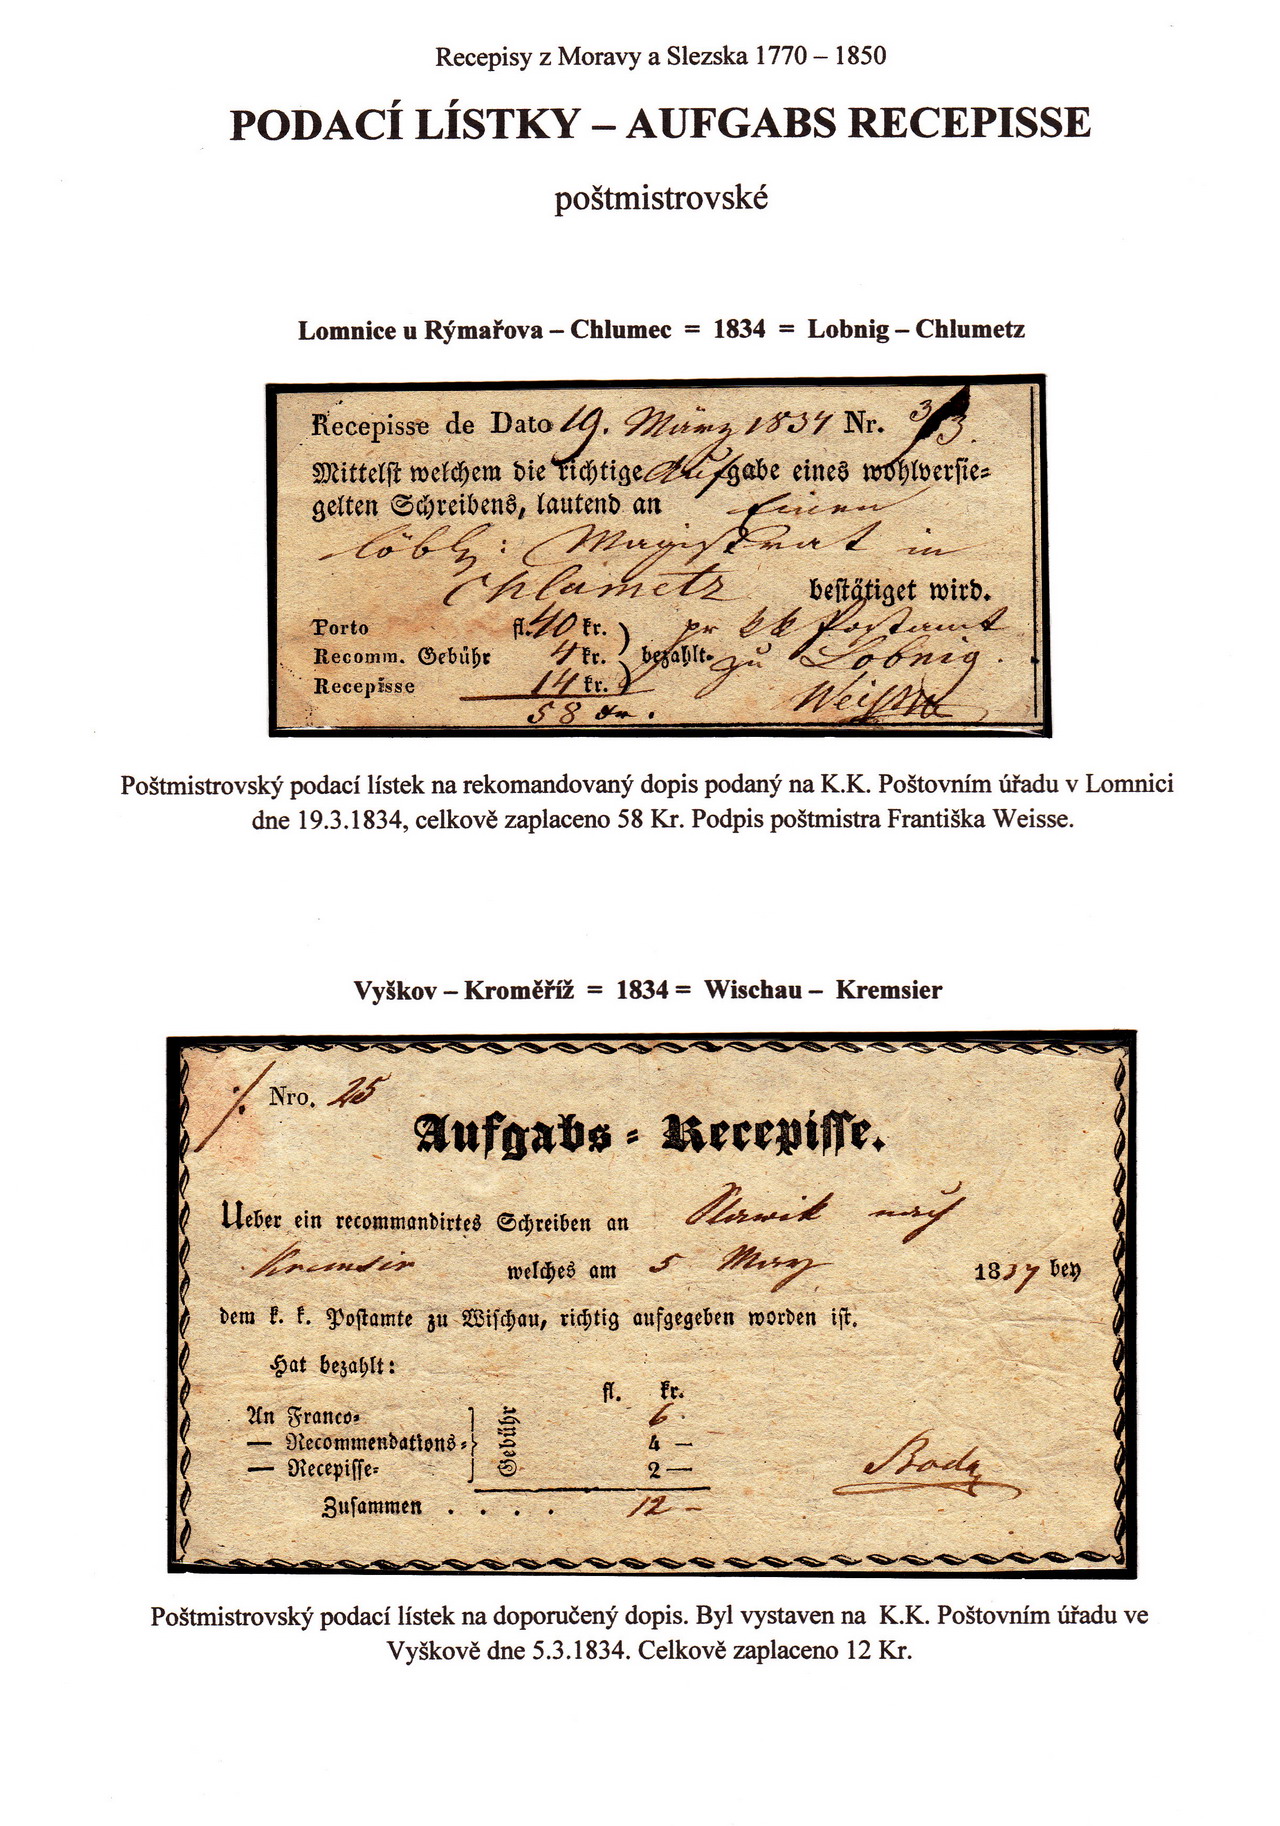 Recepisy z Moravy a Slezska 1770 – 1850
PODACÍ LÍSTKY – AUFGABS RECEPISSE
poštmistrovské
Lomnice u Rýmařova – Chlumec = 1834 = Lobnig – Chlumetz
Recepisse de Dato 19. März 1834 Nr. 3/3.
Mittelst welchem die richtige Aufgabe eines wohlversie=
gelten Schreibens, lautend an Einen
löbl: Magistrat in
Chlumetz bestätiget wird.
Porto fl. 40 kr. pr kk Postamt
Recomm. Gebühr 4 kr. bezahlt. zu Lobnig.
Recepisse 14 kr. Weisse
58 kr.
Poštmistrovský podací lístek na rekomandovaný dopis podaný na K.K. Poštovním úřadu v Lomnici
dne 19.3.1834, celkově zaplaceno 58 Kr. Podpis poštmistra Františka Weisse.
Vyškov – Kroměříž = 1834 = Wischau – Kremsier
Nro. 25
Aufgabs = Recepisse.
Ueber ein recommandirtes Schreiben an nach
Kremsir welches am 5 May 1834 bey
dem k. k. Postamte zu Wischau, richtig aufgegeben worden ist.
Hat bezahlt:
fl. kr.
An Franco= 6
— Recommendations= Gebühr 4 —
— Recepisse= 2 —
Zusammen . . . . 12 –
Poštmistrovský podací lístek na doporučený dopis. Byl vystaven na K.K. Poštovním úřadu ve
Vyškově dne 5.3.1834. Celkově zaplaceno 12 Kr.